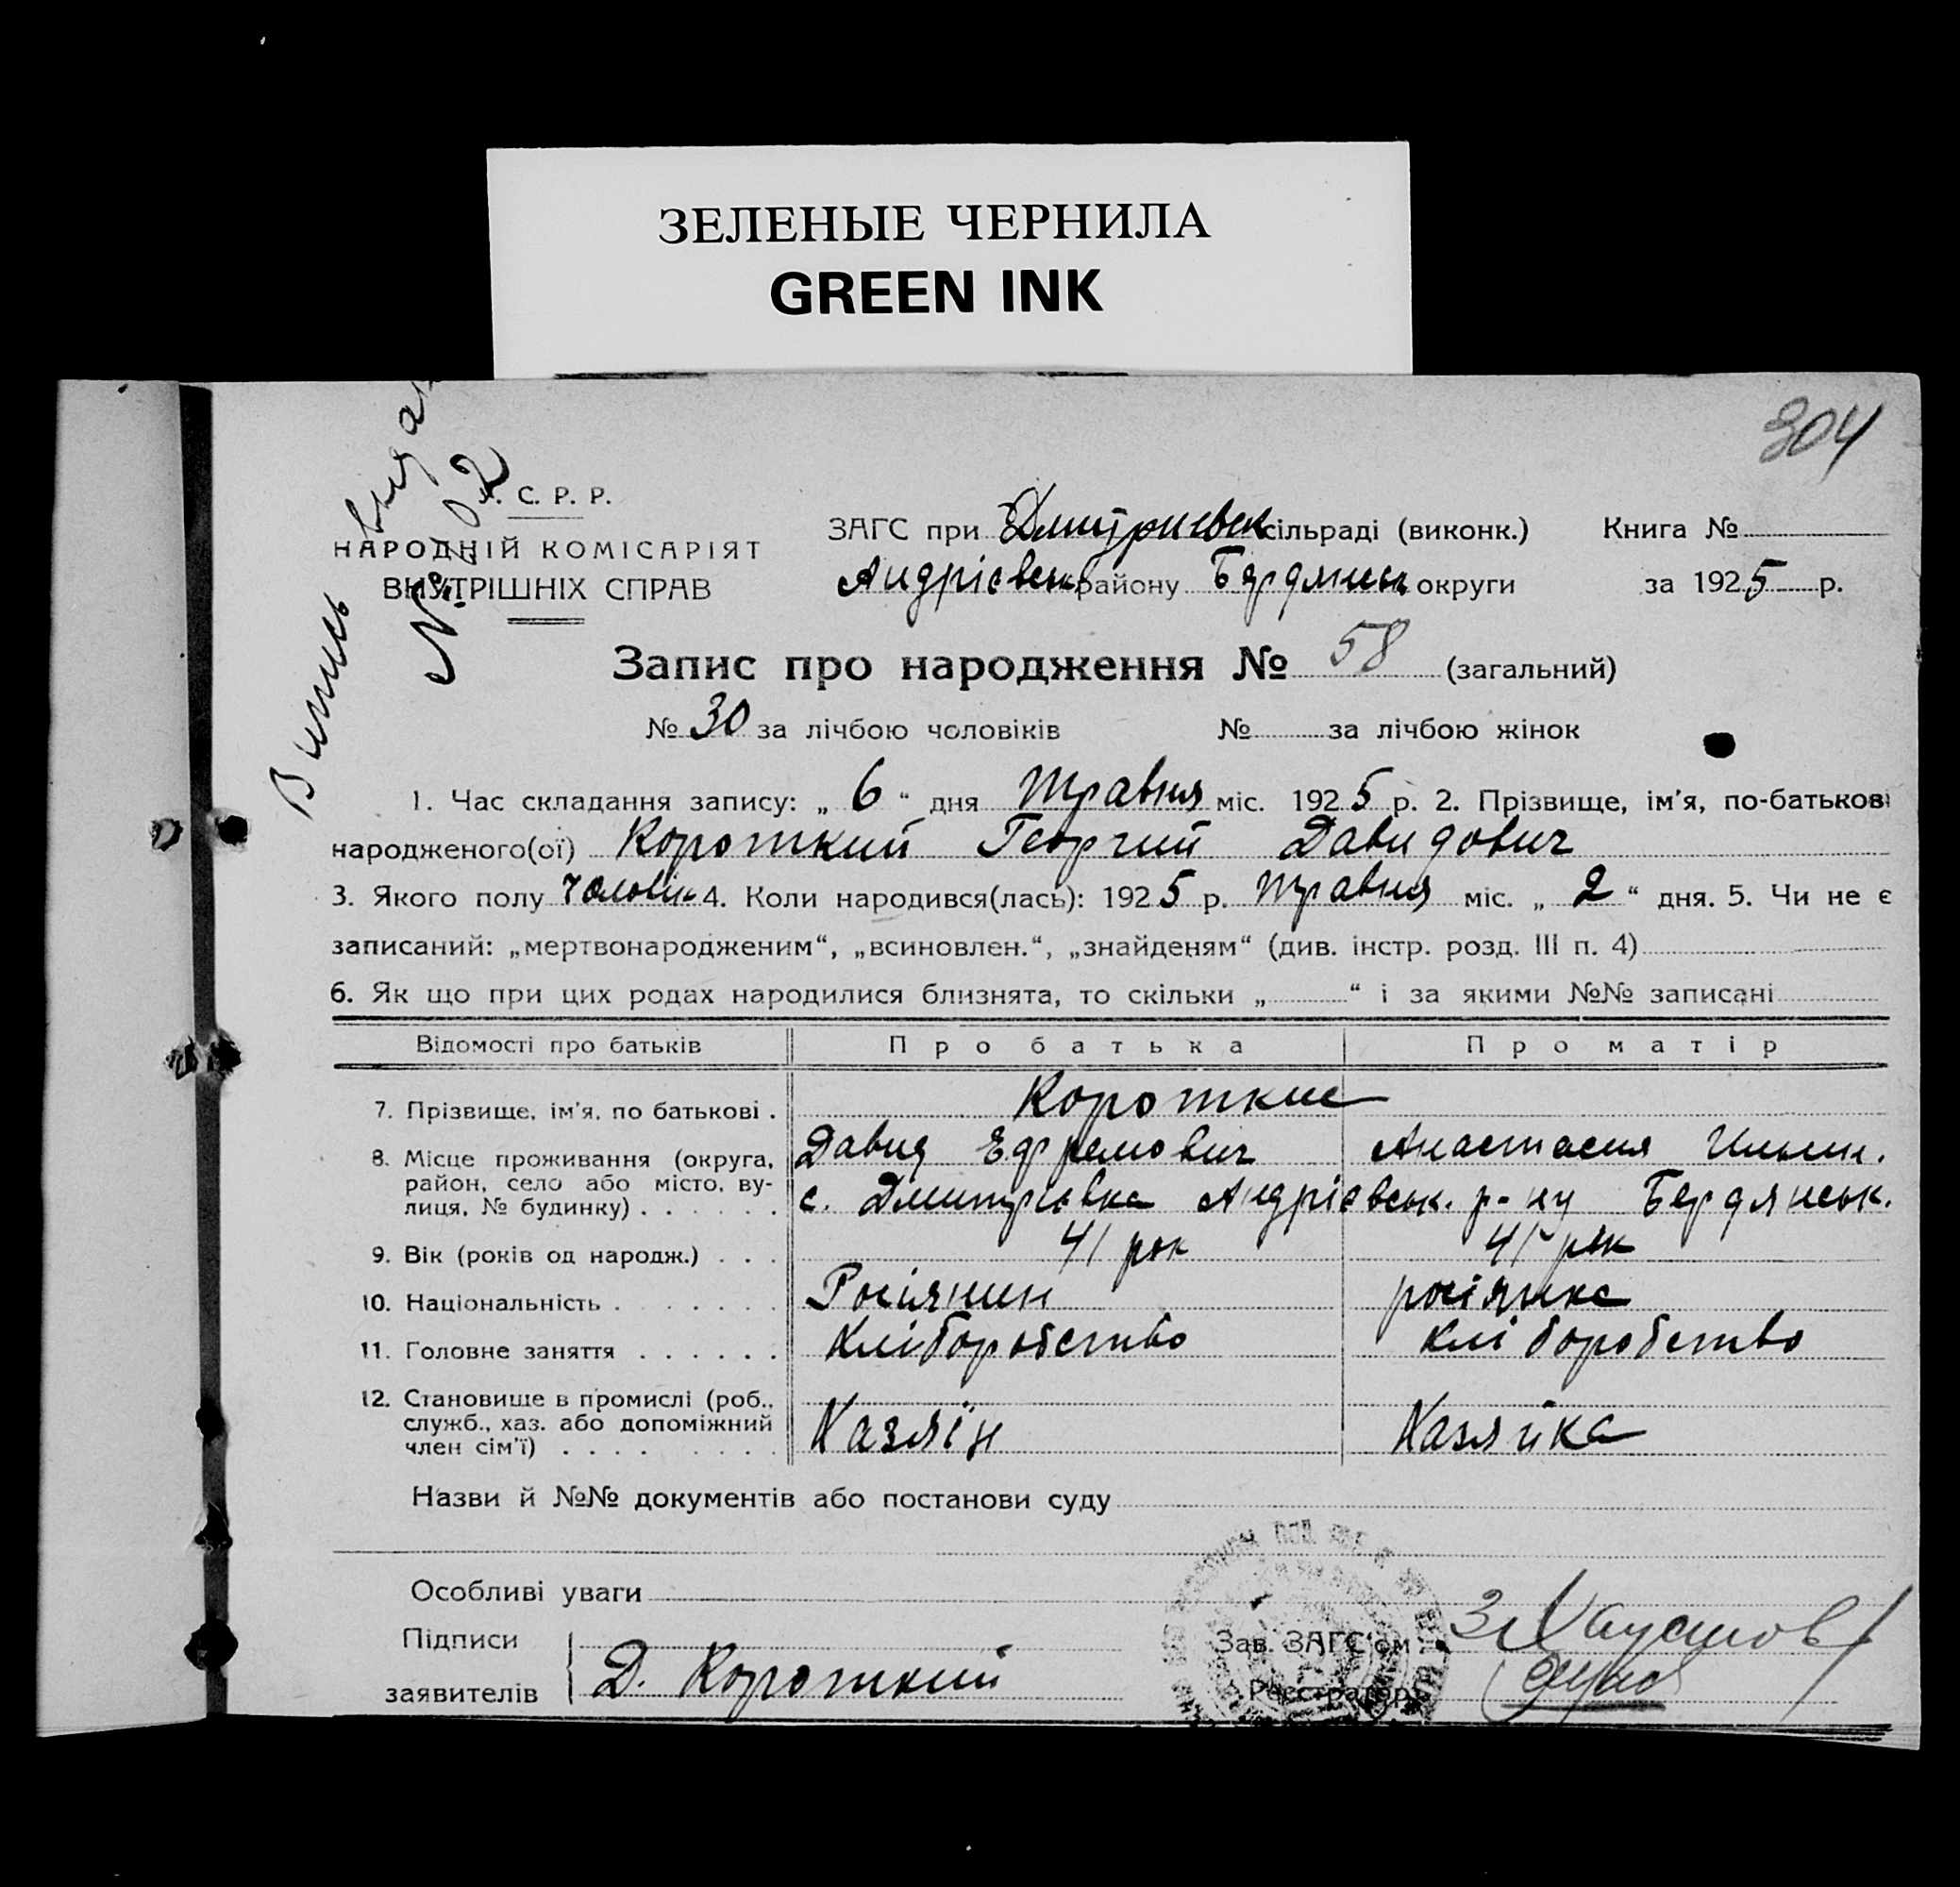 ЗЕЛЕНЫЕ ЧЕРНИЛА
GREEN INK
304
Випись видан
№ 02
С. Р. Р.
НАРОДНІЙ КОМІСАРІЯТ
ВНУТРІШНІХ СПРАВ
ЗАГС при Дмитриевск сільраді (виконк.) Книга №
Андріевськ району Бердянськ округи за 1925 р.
Запис про народження № 58 (загальний)
№ 30 за лічбою чоловіків № за лічбою жінок
1. Час складання запису: „ 6 “ дня травня міс. 1925 р. 2. Прізвище, ім'я, по-батькові
народженого(ої) Короткий Георгий Давидович
3. Якого полу чоловік 4. Коли народився(лась): 1925 р. травня міс. „ 2 “ дня. 5. Чи не є
записаний: „мертвонародженим“, „всиновлен.“, „знайденям“ (див. інстр. розд. III п. 4)
6. Як що при цих родах народилися близнята, то скільки „ “ і за якими №№ записані
Відомості про батьків Про батька Про матір
7. Прізвище, ім'я, по батькові . Короткие
Давид Ефремович Анастасия Ильин.
8. Місце проживання (округа,
район, село або місто, ву-
лиця, № будинку) . . . . . . с. Дмитрівка Андрієвськ. р-ну Бердянськ.
9. Вік (років од народж.) . . . 41 рок 41 рок
10. Національність . . . . . . . Росіянин росіянка
11. Головне заняття . . . . . . Хліборобство хліборобство
12. Становище в промислі (роб.,
служб., хаз. або допоміжний
член сім'ї) . . . . . . . . Хазяїн Хазяйка
Назви й №№ документів або постанови суду
Особливі уваги
Підписи
заявителів Д. Короткий
Зав. ЗАГС'ом Хаустов
Реєстратор